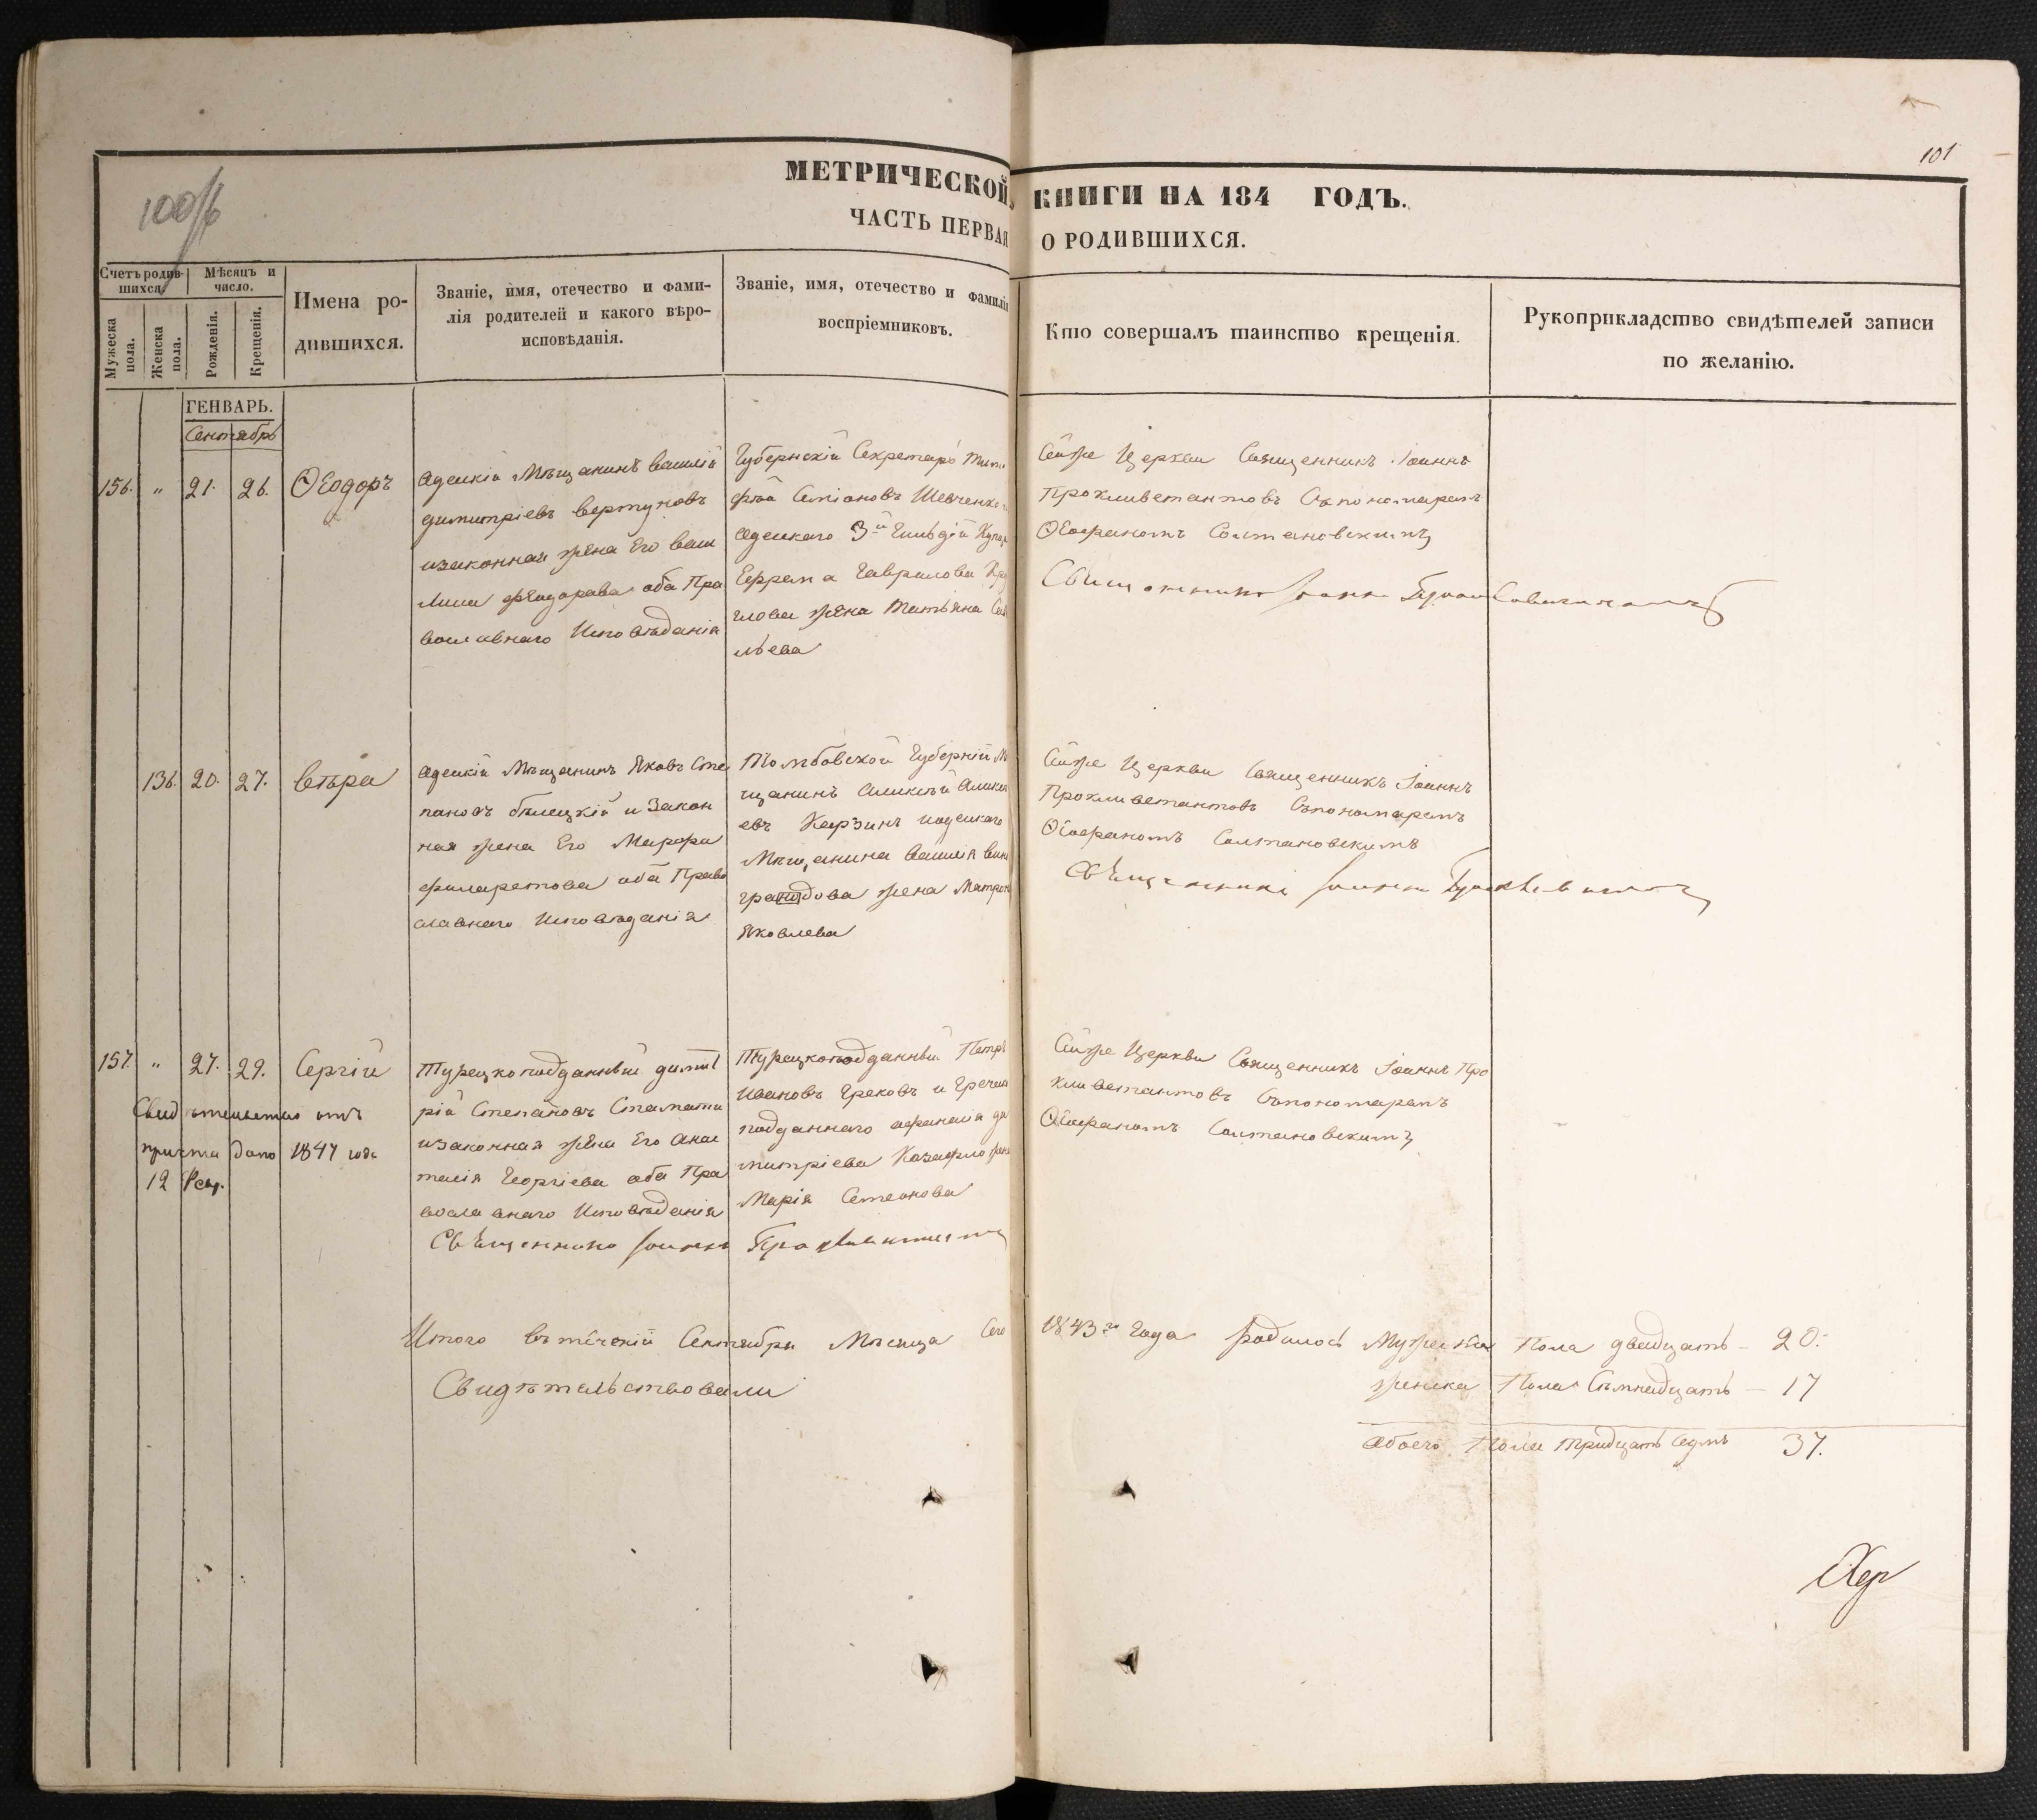 101
100/б
МЕТРИЧЕСКОЙ КНИГИ НА 184 ГОДЪ.
ЧАСТЬ ПЕРВАЯ О РОДИВШИХСЯ.
Счетъ родив-
шихся.
Мѣсяцъ и
число.
Мужеска
пола.
Женска
пола.
Рожденія.
Крещенія.
Имена ро-
дившихся.
Званіе, имя, отечество и фами-
лія родителей и какого вѣро-
исповѣданія.
Званіе, имя, отечество и фамилія
воспріемниковъ.
Кто совершалъ таинство крещенія.
Рукоприкладство свидѣтелей записи
по желанію.
ГЕНВАРЬ.
Сентябрь
156. " 21. 26. Ѳеодоръ
Одескій Мѣщанинъ Василій
Димитріевъ Вертуновъ
изаконная жена Его Васи
лиса Феодорова оба Пра
вославнаго Исповѣданія
Губернскій Секретарь
Семіоновъ Шевченко
Одескаго 3й Гильдіи
Ефрема Гаврилова
жена Татьяна
льева
Сейже Церкви Священникъ Іоаннъ
Прокливетантовъ Съпономаремъ
Ѳеофаномъ Солтановскимъ
Священникъ Іоаннъ
136. 20. 27. Вѣра
Одескій Мѣщанинъ Яковъ Сте
пановъ Бѣлецкій и Закон
ная жена Его Марфа
Филаретова оба Право
славнаго Исповѣданія
Томбовской Губерніи М
щанинъ Аликсѣй Аликсѣ
евъ Карзинъ иодескаго
Мѣщанина Василія Вино
градова жена Матрона
Яковлева
Сейже Церкви Священникъ Іоаннъ
Прокливетантовъ Съпономаремъ
Ѳеофаномъ Солтановскимъ
Свѣщенникъ Іоаннъ
157. " 27. 29. Сергій
Свидѣтельство отъ
причта дано 1847 года
12
Турецкоподданный Димит
рій Степановъ Стамати
изаконная жена Его Анас
тасія Георгіева оба Пра
вославнаго Исповѣданія
Турецкоподданный Петръ
Ивановъ Грековъ и Гречес
подданнаго Афанасія Ди
митріева жена
Марія Стеѳанова
Сейже Церкви Священникъ Іоаннъ Про
кливетантовъ Съпономаремъ
Ѳеофаномъ Солтановскимъ
Свѣщенникъ Іоаннъ
Итого въ теченіи Сентября Мѣсяца Сего 1843го Года родилось Мужеска Пола двадцать — 20.
женска Пола Семнадцать — 17
Обоего Пола тридцать Седмь 37.
Свидѣтельствовали
Хер